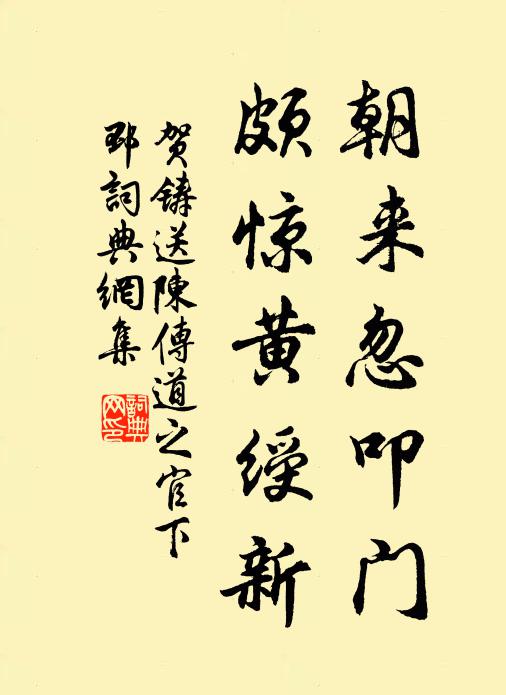 朝来忽叩门
颇惊黄绶新
贺铸送陳傳道之官下
邳詞典網集
詞典网印